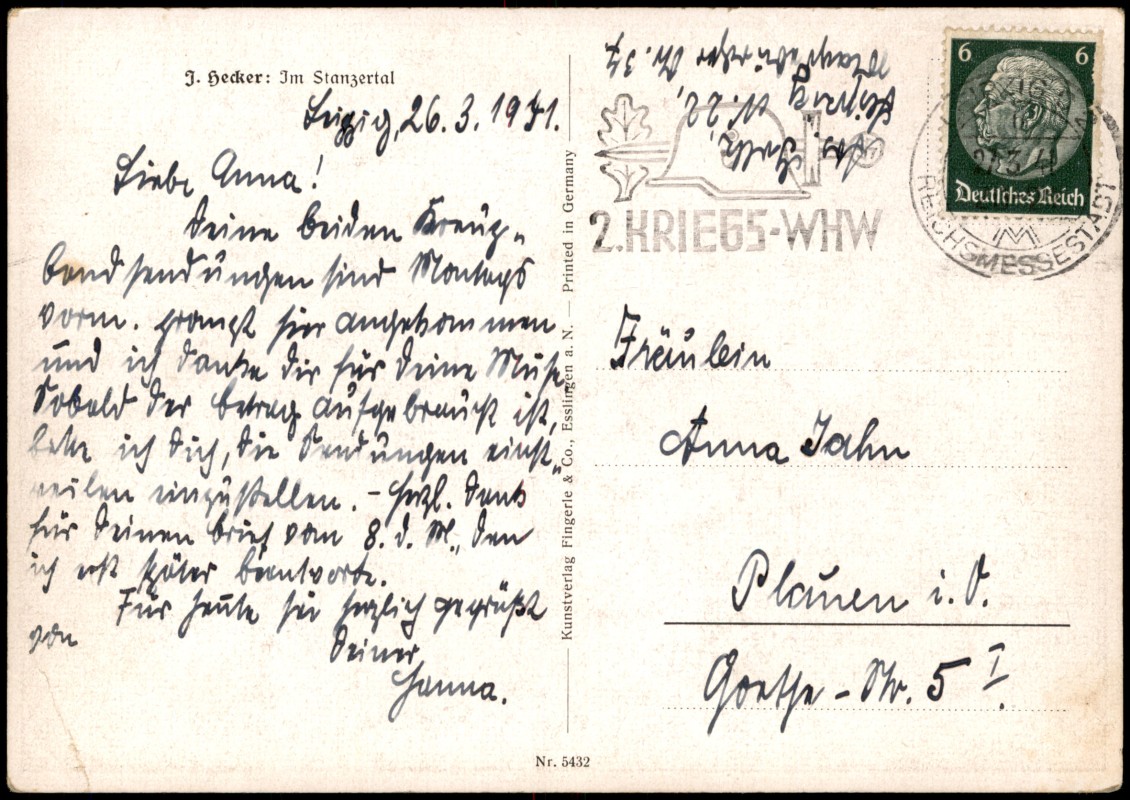 J. Hecker: Im Stanzertal
Leipzig, 26.3.1941.
Liebe Anna!
Deine beiden Kreuz-
bandsendungen sind Montags
vorm. prompt hier angekommen
und ich danke dir für deine Mühe.
Sobald der Betrag aufgebraucht ist,
bitte ich dich, die Sendungen einst-
weilen einzustellen. - Herzl. Dank
für deinen Brief vom 8. d. M., den
ich erst später beantworte.
Für heute sei herzlich gegrüßt
von Deiner
Hanna.
Kunstverlag Fingerle & Co., Esslingen a. N. — Printed in Germany
Nr. 5432
Abs.
Leipzig N. 22,
Magdeburger Str. 34
2. KRIEGS-WHW
6 6
Deutsches Reich
REICHSMESSESTADT
Fräulein
Anna Jahn
Plauen i. V.
Goethe-Str. 5 I.